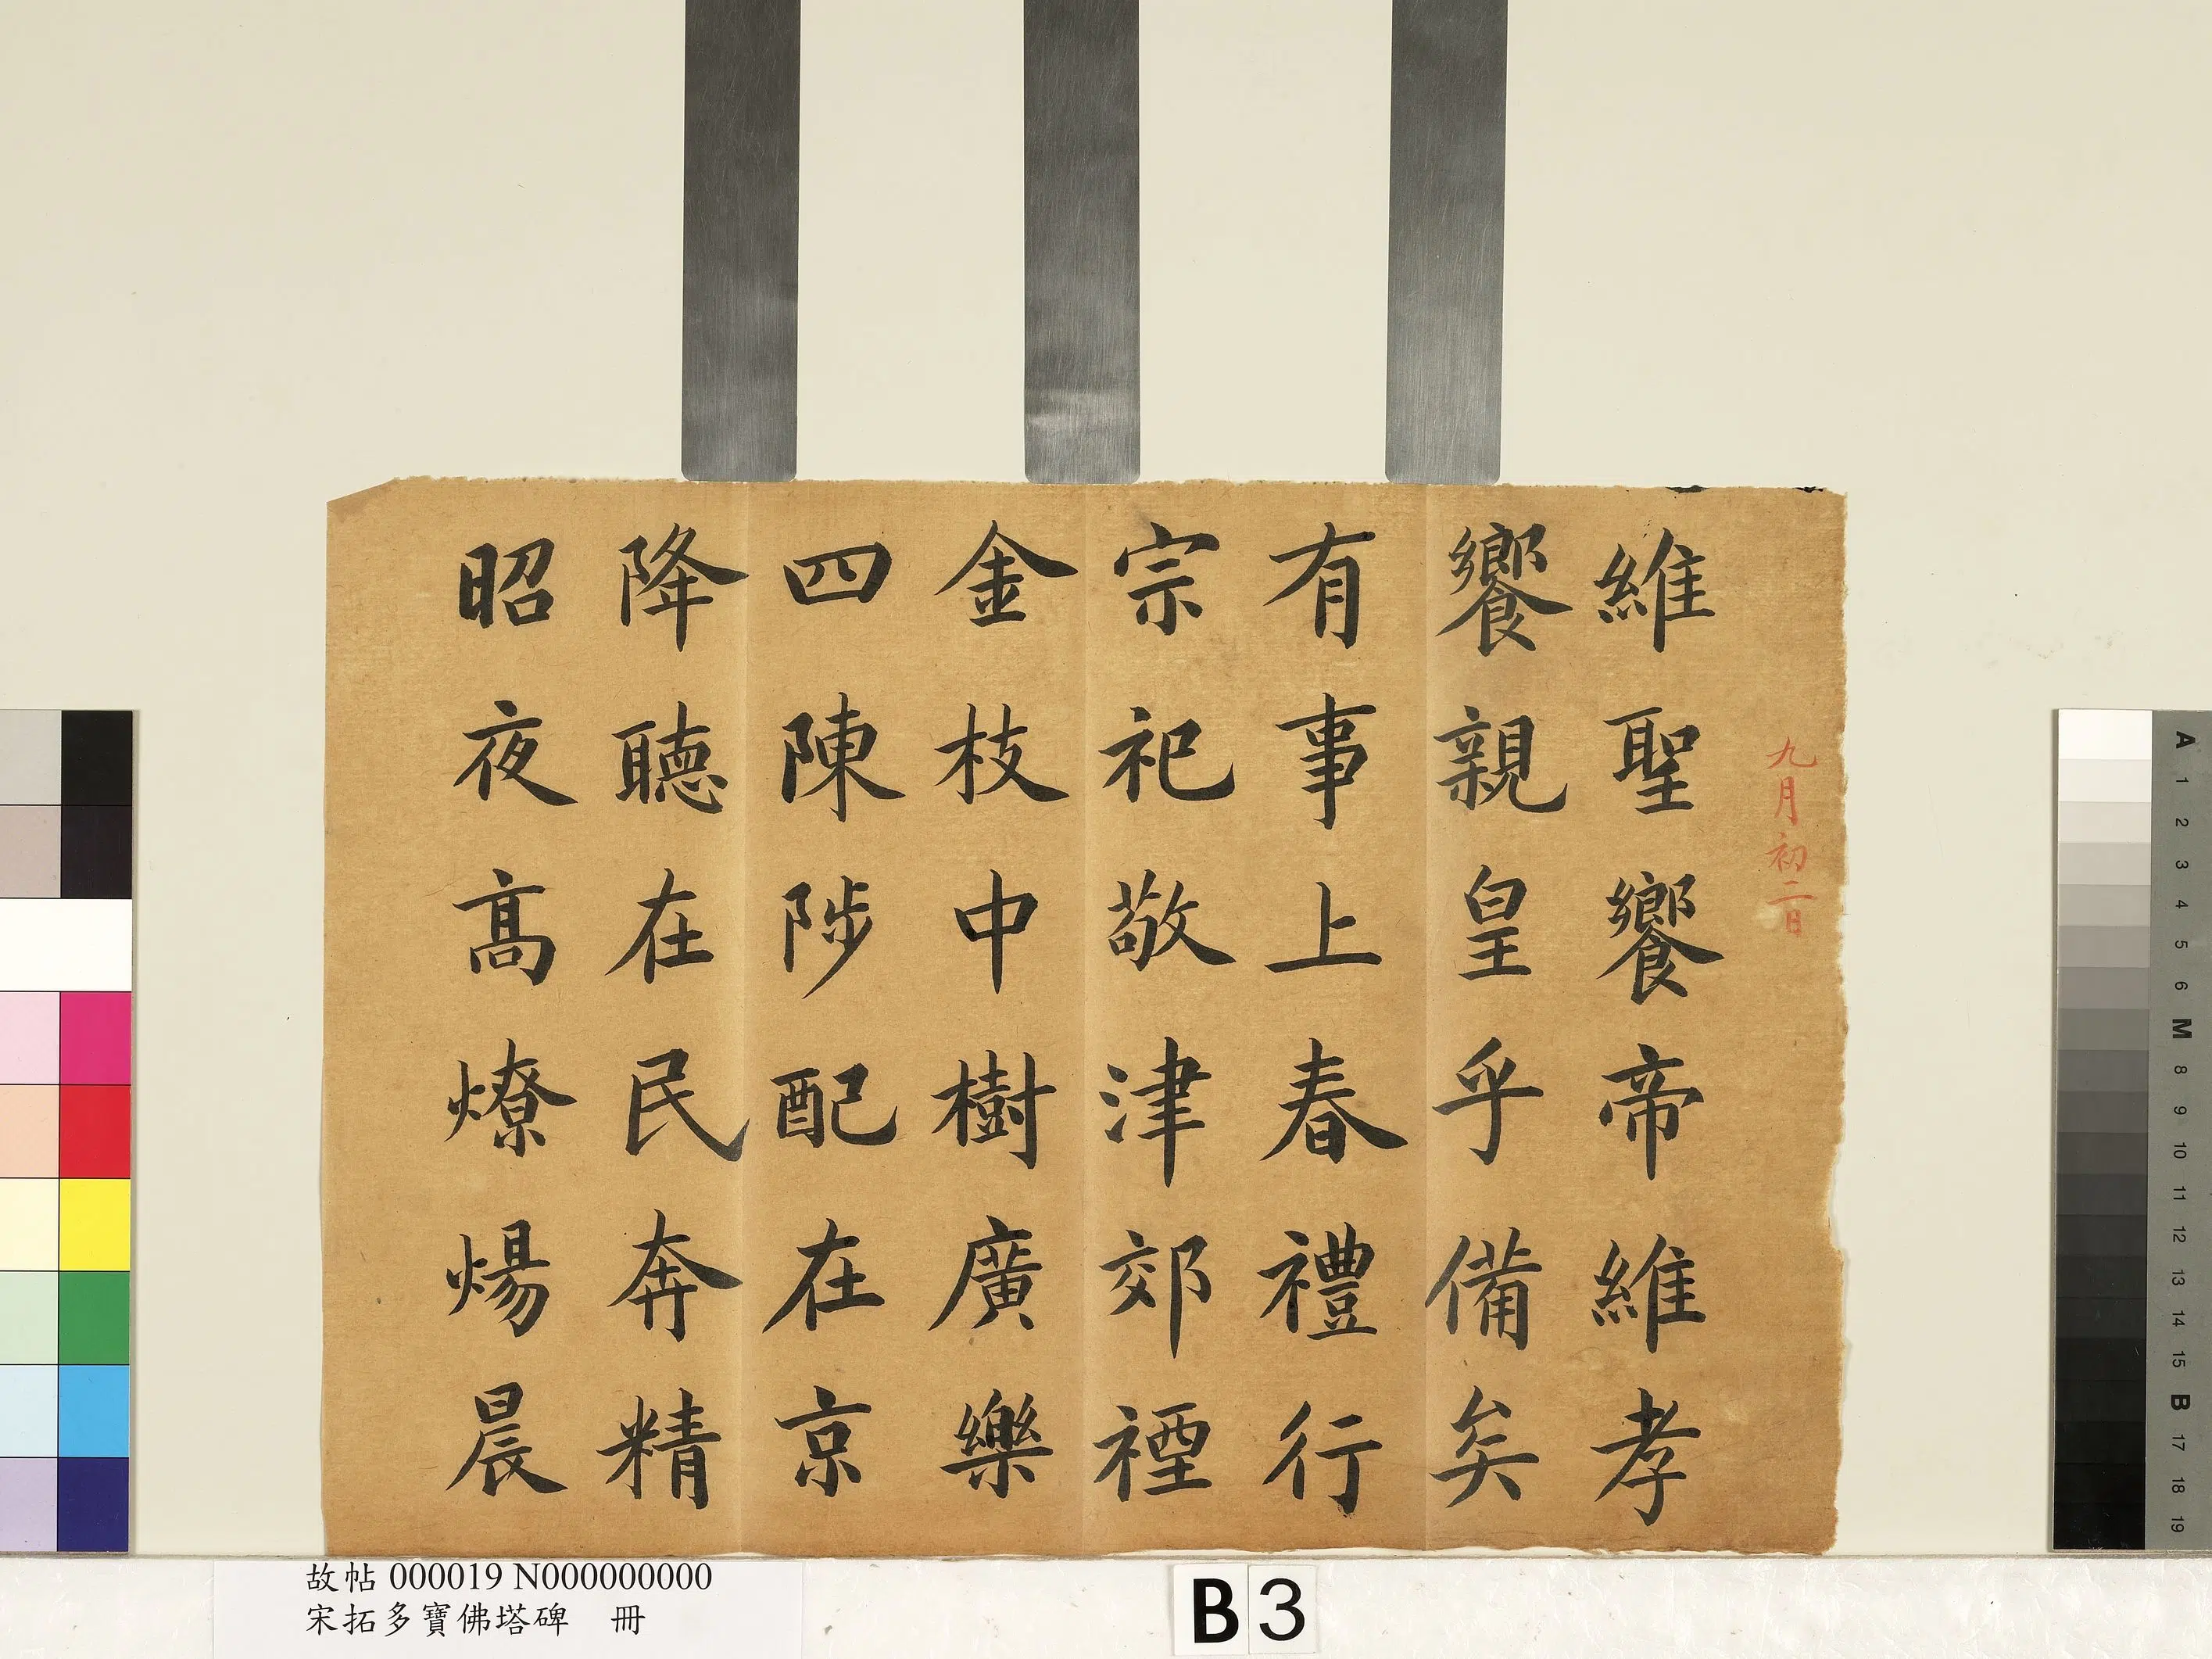 九月初二日
維聖饗帝維孝
饗親皇乎備矣
有事上春禮行
宗祀敬津郊禋
金枝中樹廣樂
四陳陟配在京
降聽在民奔精
昭夜高燎煬晨
故帖 000019 N000000000
宋拓多寶佛塔碑 冊
B 3
A
1
2
3
4
5
6
M
8
9
10
11
12
13
14
15
B
17
18
19